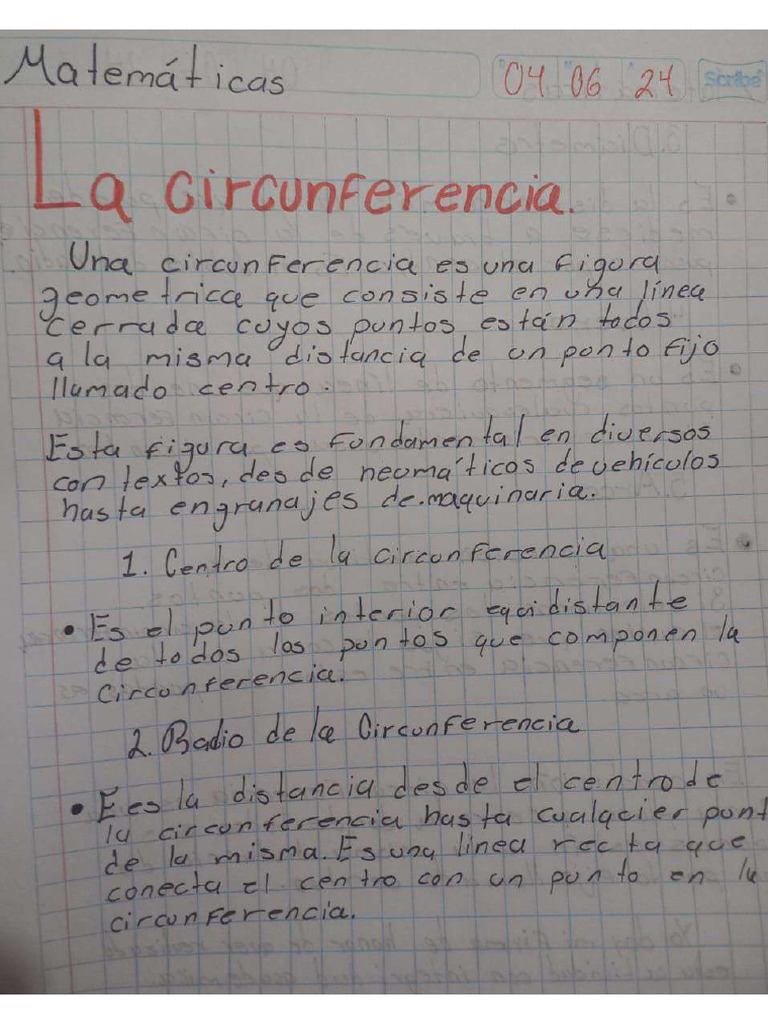 Matemáticas
04 06 24
Scribe
La circunferencia.
Una circunferencia es una figura
geometrica que consiste en una línea
cerrada cuyos puntos están todos
a la misma distancia de un punto fijo
llamado centro.
Esta figura es fundamental en diversos
contextos, desde neumáticos de vehículos
hasta engranajes de maquinaria.
1. Centro de la circunferencia
• Es el punto interior equidistante
de todos los puntos que componen la
circunferencia.
2. Radio de la Circunferencia
• E es la distancia desde el centro de
la circunferencia hasta cualquier punt
de la misma. Es una linea recta que
conecta el centro con un punto en la
circunferencia.